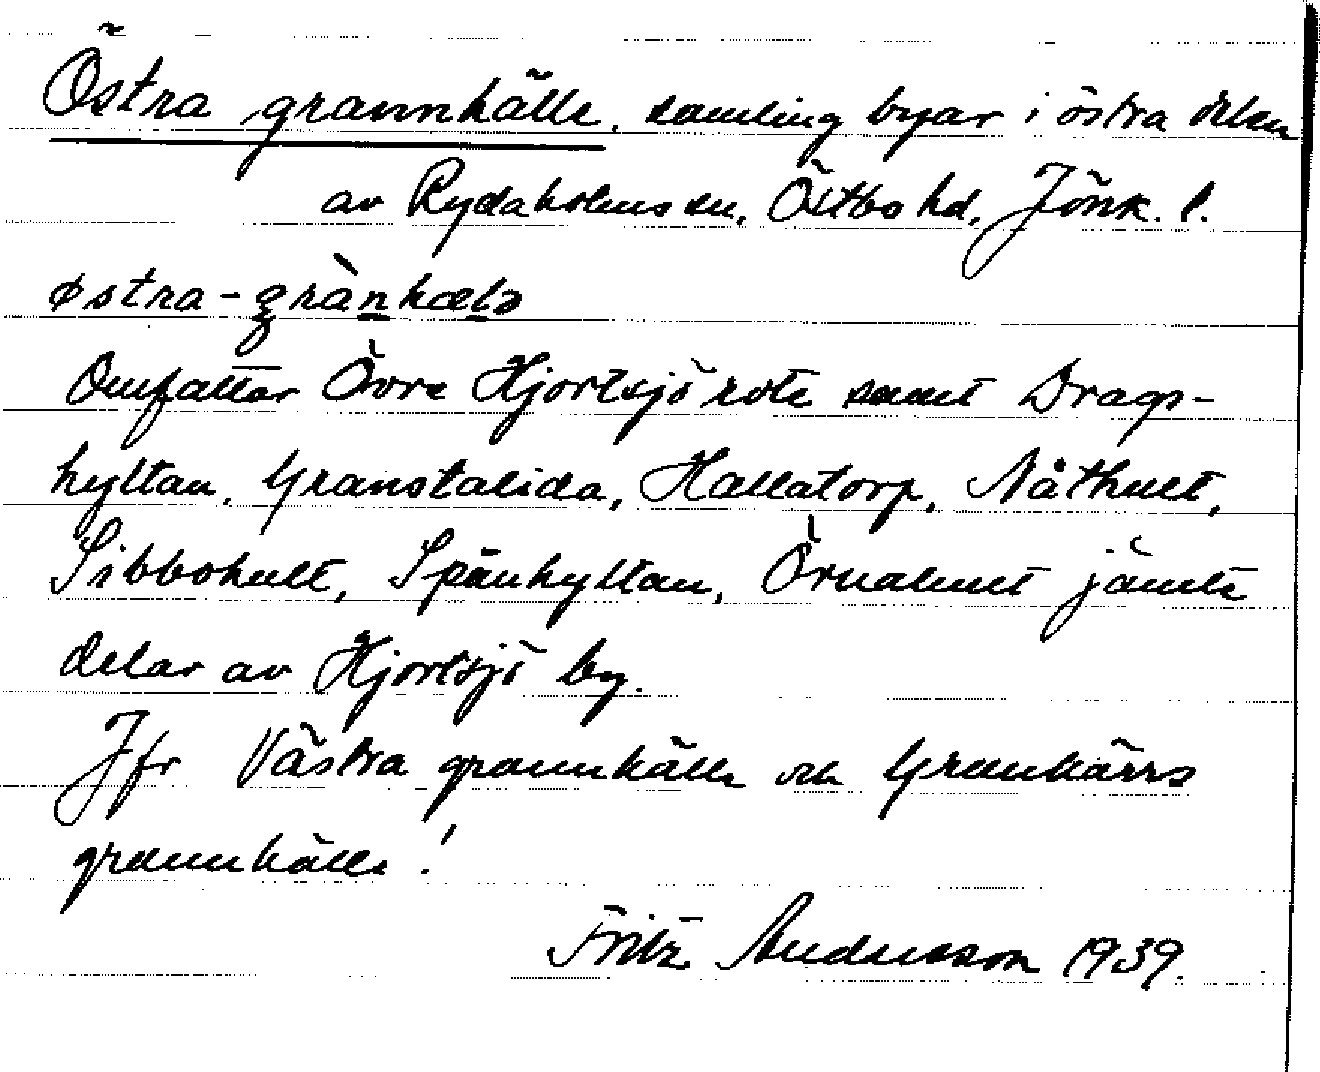 Östra grannhälle, samling byar i östra delen
av Rydaholms sn, Östbo hd, Jönk. l.
østra-grànhælə
Omfattar Övre Hjortsjö rote samt Drags-
hyltan, Granstalida, Hallatorp, Nåthult,
Sibbohult, Spånhyltan, Örnalmut jämte
delar av Hjortsjö by.
Jfr Västra grannhälle och Grankärrs
grannhälle!
Fritz Andersson 1939.